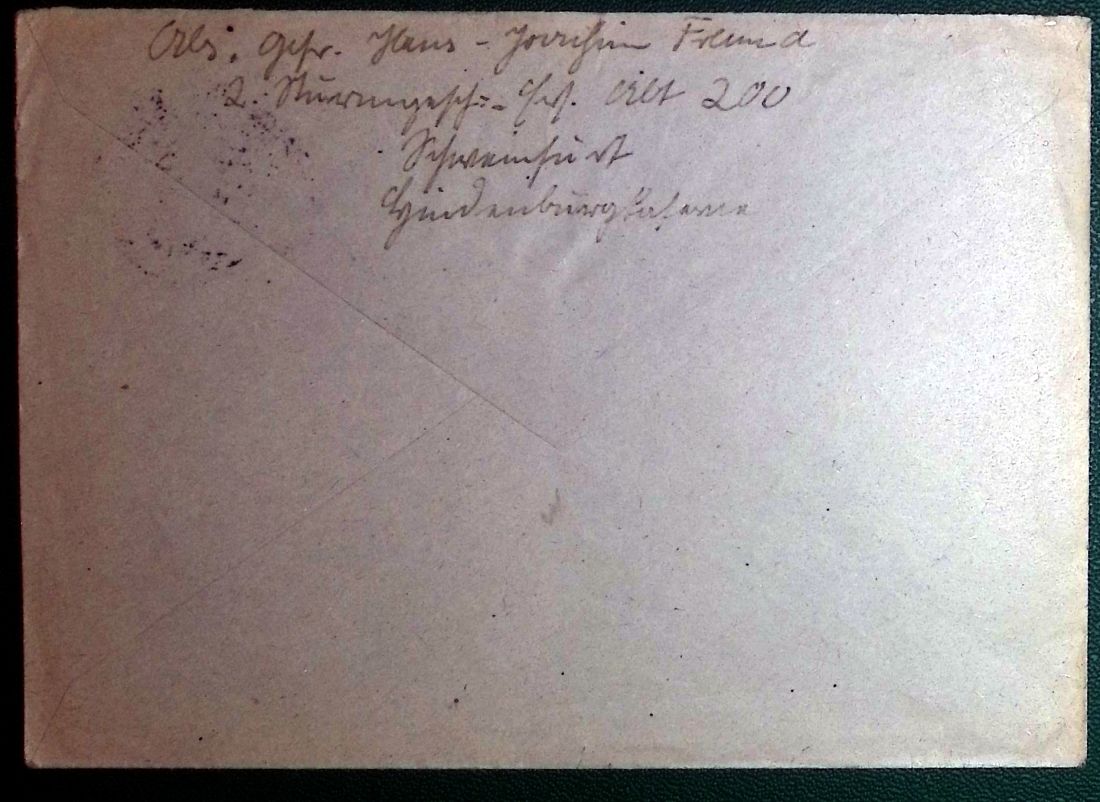 Abs. Gefr. Hans-Joachim Freund
2. Sturmgesch.- Ers. Abt 200
Schweinfurt
Hindenburgkaserne